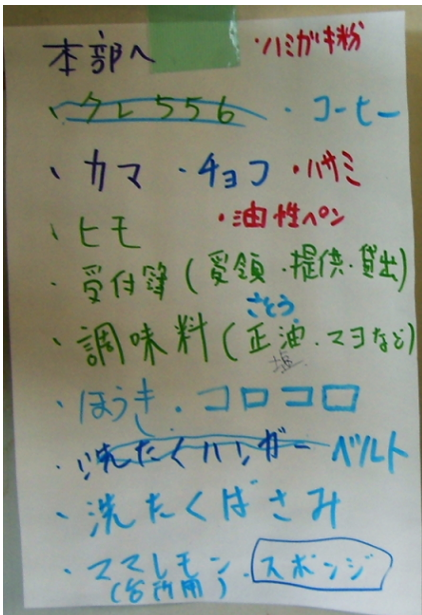 本部へ ・ハミガキ粉
・クレ556 ・コーヒー
・カマ ・チョコ ・ハサミ
・ヒモ ・油性ペン
・受付簿(受領・提供・貸出)
さとう
・調味料(正油・マヨなど)
塩
・ほうき・コロコロ
・洗たくハンガー ベルト
・洗たくばさみ
・ママレモン・スポンジ
(台所用)